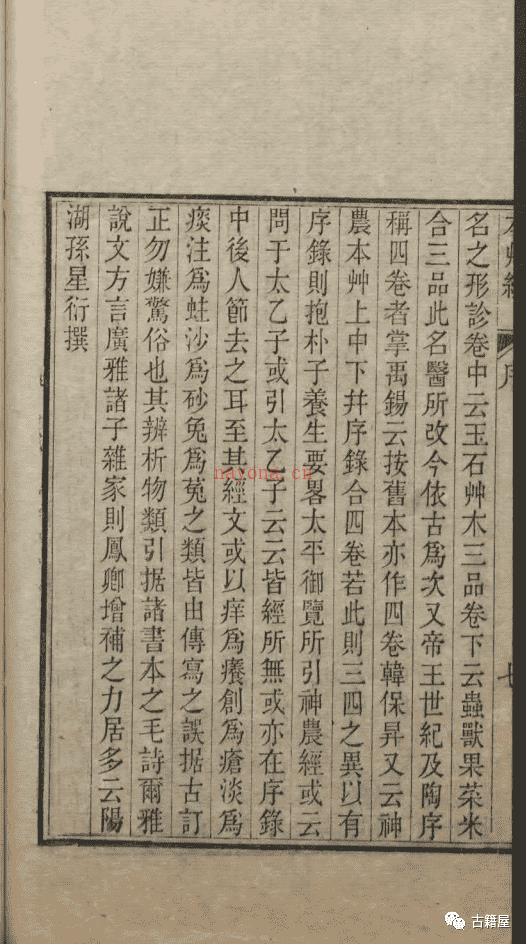 本艸經 序 七
名之形診卷中云玉石艸木三品卷下云蟲獸果菜米
合三品此名醫所改今依古爲次又帝王世紀及陶序
稱四卷者掌禹錫云按舊本亦作四卷韓保昇又云神
農本艸上中下并序錄合四卷若此則三四之異以有
序錄則抱朴子養生要畧太平御覽所引神農經或云
問于太乙子或引太乙子云云皆經所無或亦在序錄
中後人節去之耳至其經文或以痒爲癢創爲瘡淡爲
痰注爲蛀沙爲砂兔爲菟之類皆由傳寫之誤据古訂
正勿嫌驚俗也其辨析物類引据諸書本之毛詩爾雅
說文方言廣雅諸子雜家則鳳卿增補之力居多云陽
湖孫星衍撰
nayona.cn
古籍屋